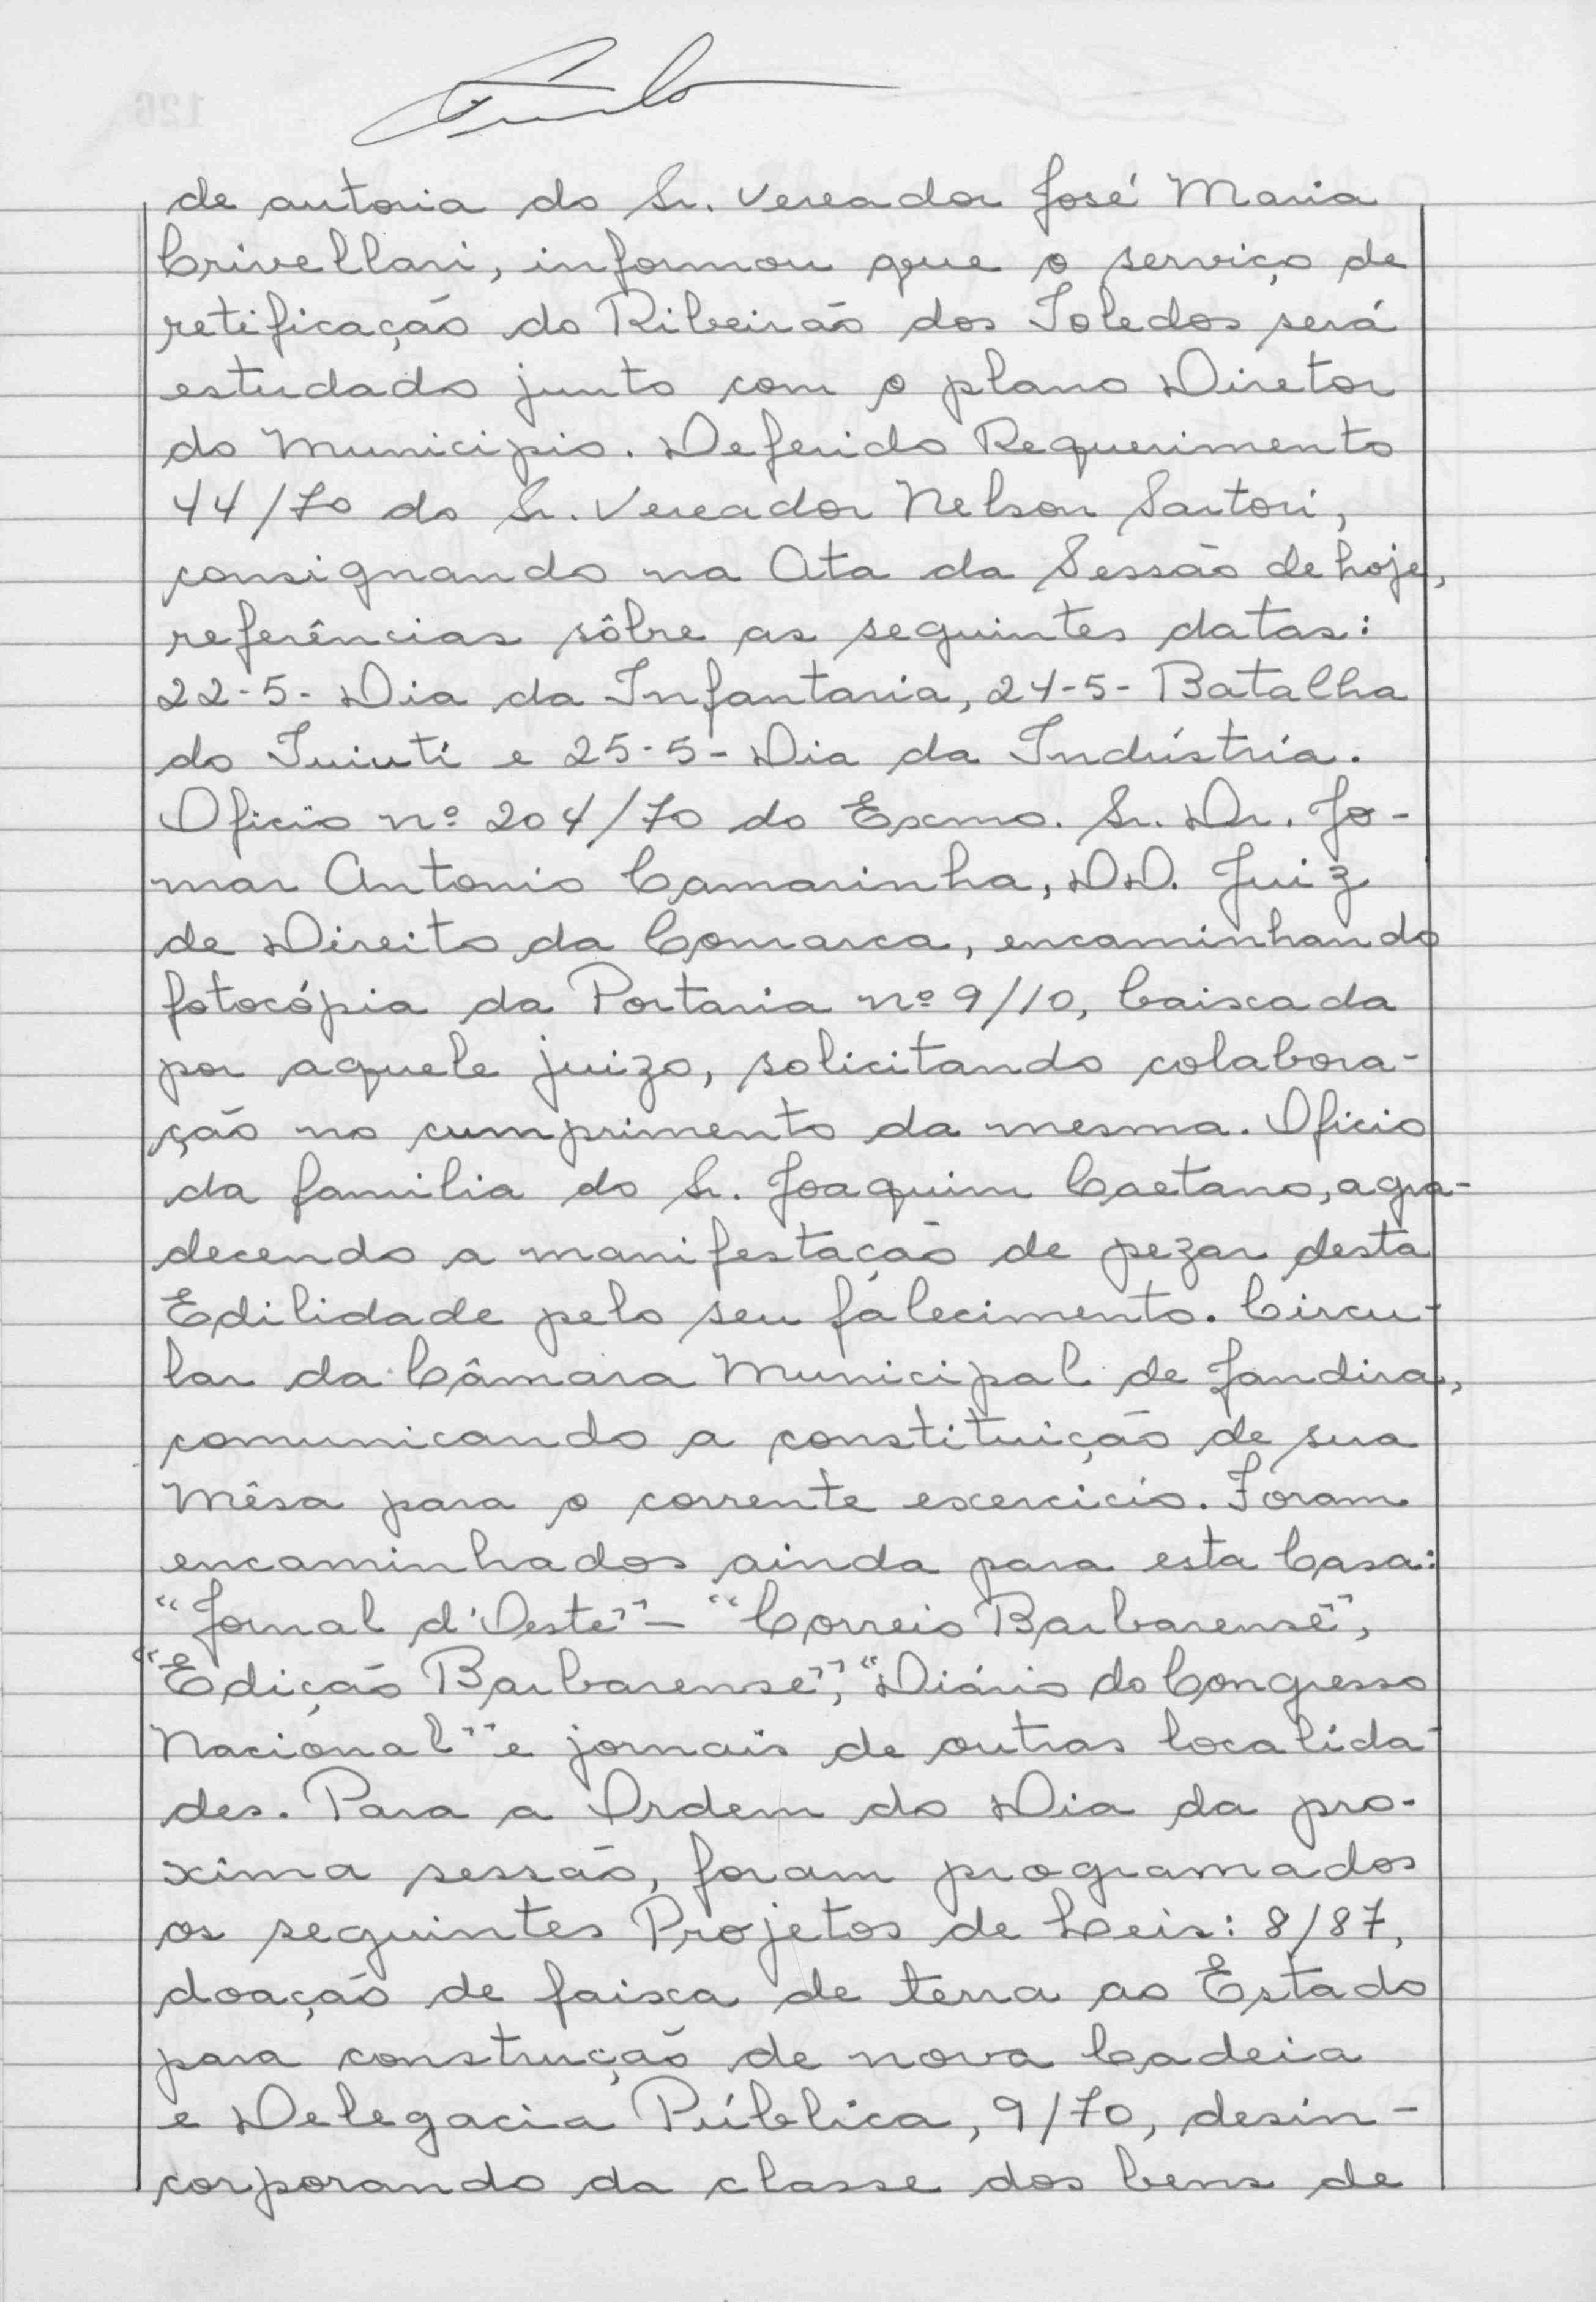 de autoria do Sr. Vereador José Maria
Crivellari, informou que o serviço de
retificação do Ribeirão dos Toledos será
estudado junto com o plano Diretor
do Municipio. Deferido Requerimento
44/70 do Sr. Vereador Nelson Sartori,
consignando na Ata da Sessão de hoje,
referências sôbre as seguintes datas:
22-5- Dia da Infantaria, 24-5- Batalha
do Tuiuti e 25-5- Dia da Indústria.
Oficio nº 204/70 do Exmo. Sr. Dr. Jo-
mar Antonio Camarinha, DD. Juiz
de Direito da Comarca, encaminhando
fotocópia da Portaria nº 9/10, baixada
por aquele juizo, solicitando colabora-
ção no cumprimento da mesma. Oficio
da familia do Sr. Joaquim Caetano, agra-
decendo a manifestação de pezar desta
Edilidade pelo seu falecimento. Circu-
lar da Câmara Municipal de Jandira,
comunicando a constituição de sua
Mêsa para o corrente exercicio. Foram
encaminhados ainda para esta Casa:
"Jornal d'Oeste" - "Correio Barbarense",
"Edição Barbarense", "Diário do Congresso
Nacional" e jornais de outras localida-
des. Para a Ordem do Dia da pro-
xima sessão, foram programados
os seguintes Projetos de Leis: 8/87,
doação de faixa de terra ao Estado
para construção de nova Cadeia
e Delegacia Pública, 9/70, desin-
corporando da classe dos bens de